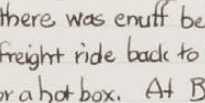 there was enuff be
freight ride back to
or a hot box. At B